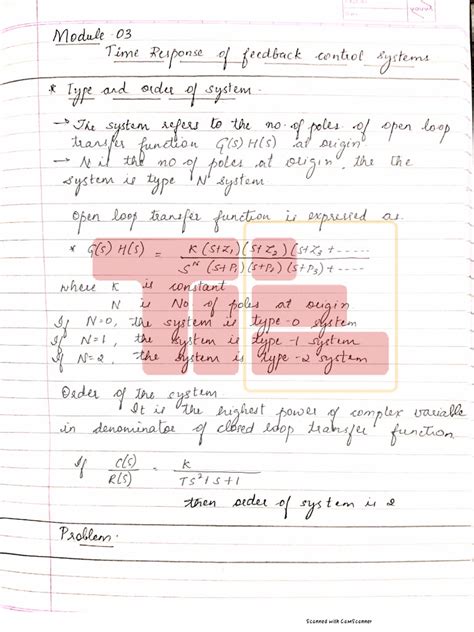 Module - 03
Time Response of feedback control systems
* Type and order of system.
→ The system refers to the no. of poles of open loop
transfer function G(s) H(s) at origin
→ N is the no of poles at origin, the the
system is type N system
Open loop transfer function is expressed as
* G(s) H(s) = K (s+Z₁) (s+Z₂) (s+Z₃ + -----
Sᴺ (s+P₁) (s+P₂) (s+P₃) + -----
where K is constant
N is No of poles at origin
If N=0, the system is type-0 system
If N=1, the system is type-1 system
If N=2, the system is type-2 system
Order of the system
It is the highest power of complex variable
in denominator of closed loop transfer function
If C(s)/R(s) = K / TS²+S+1
then order of system is 2
Problem.
Scanned with CamScanner